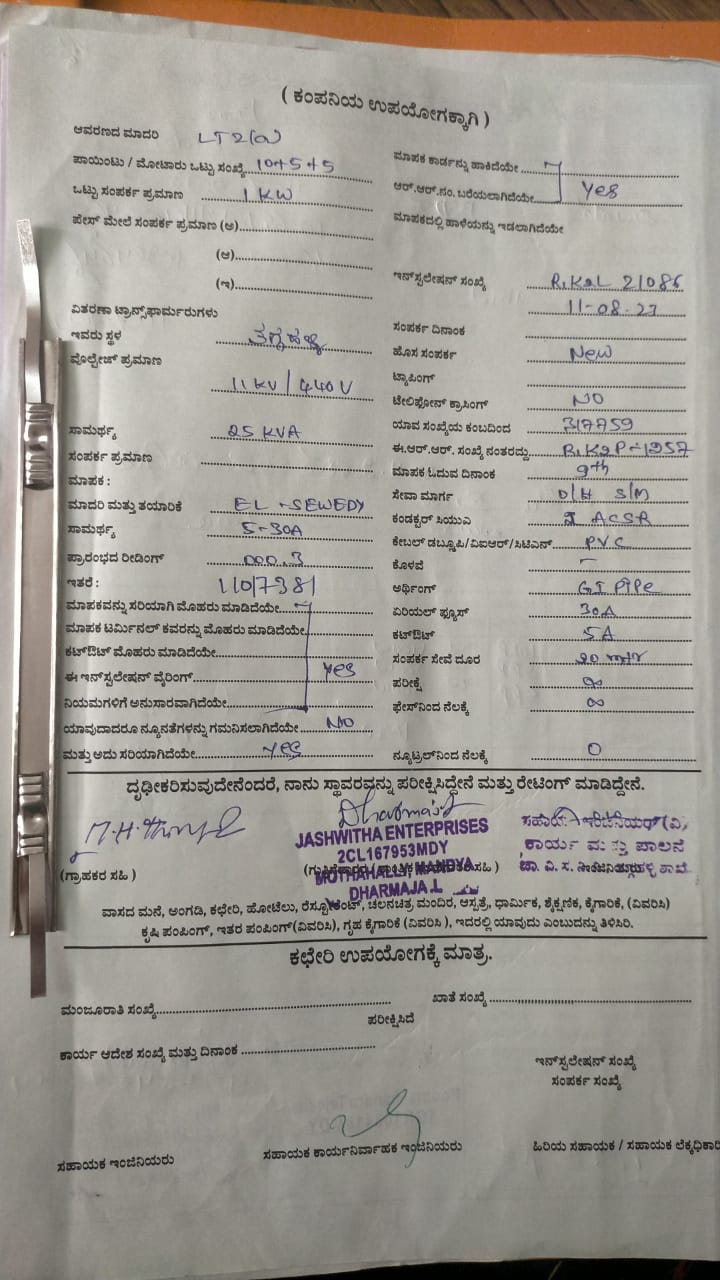 ( ಕಂಪನಿಯ ಉಪಯೋಗಕ್ಕಾಗಿ )
ಆವರಣದ ಮಾದರಿ LT2(a)
ಪಾಯಿಂಟು / ಮೋಟಾರು ಒಟ್ಟು ಸಂಖ್ಯೆ 10+5+5
ಒಟ್ಟು ಸಂಪರ್ಕ ಪ್ರಮಾಣ 1 KW
ಫೇಸ್ ಮೇಲೆ ಸಂಪರ್ಕ ಪ್ರಮಾಣ (ಅ)
(ಆ)
(ಇ)
ವಿತರಣಾ ಟ್ರಾನ್ಸ್‌ಫಾರ್ಮರುಗಳು
ಇವರು ಸ್ಥಳ
ವೊಲ್ಟೇಜ್ ಪ್ರಮಾಣ
11 KV / 440 V
ಸಾಮರ್ಥ್ಯ 25 KVA
ಸಂಪರ್ಕ ಪ್ರಮಾಣ
ಮಾಪಕ :
ಮಾದರಿ ಮತ್ತು ತಯಾರಿಕೆ EL-SEWEDY
ಸಾಮರ್ಥ್ಯ 5-30A
ಪ್ರಾರಂಭದ ರೀಡಿಂಗ್ 000.3
ಇತರೆ : 1107381
ಮಾಪಕವನ್ನು ಸರಿಯಾಗಿ ಮೊಹರು ಮಾಡಿದೆಯೇ
ಮಾಪಕ ಟರ್ಮಿನಲ್ ಕವರನ್ನು ಮೊಹರು ಮಾಡಿದೆಯೇ
ಕಟ್‌ಔಟ್ ಮೊಹರು ಮಾಡಿದೆಯೇ
ಈ ಇನ್‌ಸ್ಟಲೇಷನ್ ವೈರಿಂಗ್ Yes
ನಿಯಮಗಳಿಗೆ ಅನುಸಾರವಾಗಿದೆಯೇ
ಯಾವುದಾದರೂ ನ್ಯೂನತೆಗಳನ್ನು ಗಮನಿಸಲಾಗಿದೆಯೇ NO
ಮತ್ತು ಅದು ಸರಿಯಾಗಿದೆಯೇ Yes
ಮಾಪಕ ಕಾರ್ಡನ್ನು ಹಾಕಿದೆಯೇ
ಆರ್.ಆರ್.ನಂ. ಬರೆಯಲಾಗಿದೆಯೇ Yes
ಮಾಪಕದಲ್ಲಿ ಹಾಳೆಯನ್ನು ಇಡಲಾಗಿದೆಯೇ
ಇನ್‌ಸ್ಟಲೇಷನ್ ಸಂಖ್ಯೆ RKL 21086
11-08-23
ಸಂಪರ್ಕ ದಿನಾಂಕ
ಹೊಸ ಸಂಪರ್ಕ New
ಟ್ಯಾಪಿಂಗ್
ಟೆಲಿಫೋನ್ ಕ್ರಾಸಿಂಗ್ NO
ಯಾವ ಸಂಖ್ಯೆಯ ಕಂಬದಿಂದ 317759
ಈ.ಆರ್.ಆರ್. ಸಂಖ್ಯೆ ನಂತರದ್ದು
ಮಾಪಕ ಓದುವ ದಿನಾಂಕ 9th
ಸೇವಾ ಮಾರ್ಗ O/H S/M
ಕಂಡಕ್ಟರ್ ಸಿಯುಎ ACSR
ಕೇಬಲ್ ಡಬ್ಲೂಪಿ/ವಿಐಆರ್/ಸಿಟಿಎಸ್ PVC
ಕೊಳವೆ –
ಅರ್ಥಿಂಗ್ GI Pipe
ಏರಿಯಲ್ ಫ್ಯೂಸ್ 30A
ಕಟ್‌ಔಟ್ 5A
ಸಂಪರ್ಕ ಸೇವೆ ದೂರ 20 mtr
ಪರೀಕ್ಷೆ ∞
ಫೇಸ್‌ನಿಂದ ನೆಲಕ್ಕೆ ∞
ನ್ಯೂಟ್ರಲ್‌ನಿಂದ ನೆಲಕ್ಕೆ 0
ದೃಢೀಕರಿಸುವುದೇನೆಂದರೆ, ನಾನು ಸ್ಥಾವರವನ್ನು ಪರೀಕ್ಷಿಸಿದ್ದೇನೆ ಮತ್ತು ರೇಟಿಂಗ್ ಮಾಡಿದ್ದೇನೆ.
JASHWITHA ENTERPRISES
2CL167953MDY
MOTHAHALLI, MANDYA
DHARMAJA.L
ಕಾರ್ಯ ಮತ್ತು ಪಾಲನೆ
(ಗ್ರಾಹಕರ ಸಹಿ )
ವಾಸದ ಮನೆ, ಅಂಗಡಿ, ಕಛೇರಿ, ಹೋಟೆಲು, ರೆಸ್ಟೋರೆಂಟ್, ಚಲನಚಿತ್ರ ಮಂದಿರ, ಆಸ್ಪತ್ರೆ, ಧಾರ್ಮಿಕ, ಶೈಕ್ಷಣಿಕ, ಕೈಗಾರಿಕೆ, (ವಿವರಿಸಿ)
ಕೃಷಿ ಪಂಪಿಂಗ್, ಇತರ ಪಂಪಿಂಗ್ (ವಿವರಿಸಿ), ಗೃಹ ಕೈಗಾರಿಕೆ (ವಿವರಿಸಿ ), ಇದರಲ್ಲಿ ಯಾವುದು ಎಂಬುದನ್ನು ತಿಳಿಸಿರಿ.
ಕಛೇರಿ ಉಪಯೋಗಕ್ಕೆ ಮಾತ್ರ.
ಮಂಜೂರಾತಿ ಸಂಖ್ಯೆ ಖಾತೆ ಸಂಖ್ಯೆ
ಪರೀಕ್ಷಿಸಿದೆ
ಕಾರ್ಯ ಆದೇಶ ಸಂಖ್ಯೆ ಮತ್ತು ದಿನಾಂಕ
ಇನ್‌ಸ್ಟಲೇಷನ್ ಸಂಖ್ಯೆ
ಸಂಪರ್ಕ ಸಂಖ್ಯೆ
ಸಹಾಯಕ ಇಂಜಿನಿಯರು ಸಹಾಯಕ ಕಾರ್ಯನಿರ್ವಾಹಕ ಇಂಜಿನಿಯರು ಹಿರಿಯ ಸಹಾಯಕ / ಸಹಾಯಕ ಲೆಕ್ಕಧಿಕಾರಿ